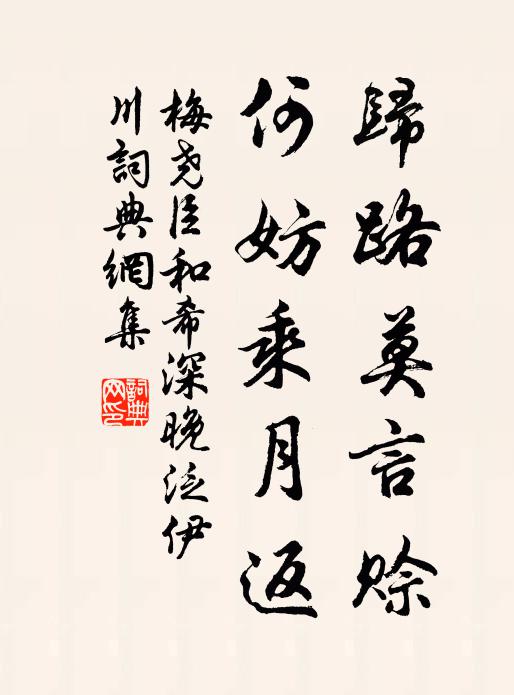 歸路莫言賒
何妨乘月返
梅堯臣和希深晚泛伊
川詞典網集
詞典
网印